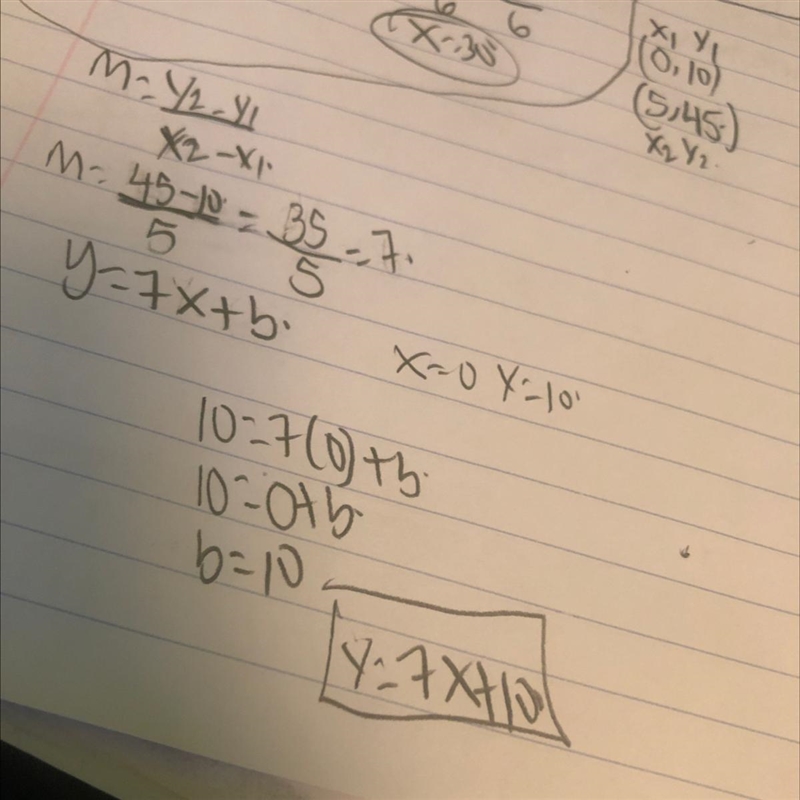 6 6
x=30
x1 y1
(0,10)
(5,45)
x2 y2
m=y2-y1/x2-x1
m=45-10/5=35/5=7.
y=7x+b.
x=0 y=10
10=7(0)+b.
10=0+b.
b=10
y=7x+10